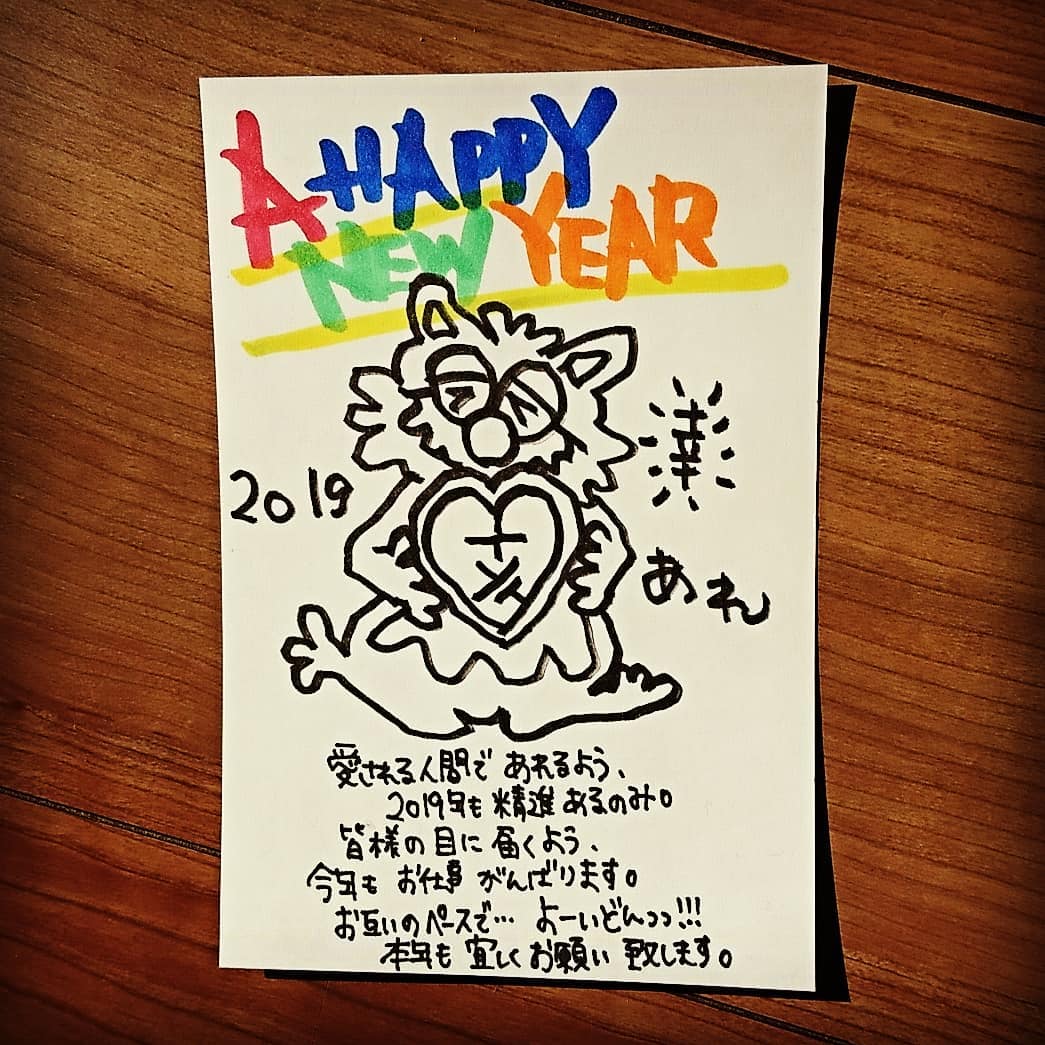 A HAPPY
NEW YEAR
2019
幸
あれ
愛される人間で あれるよう、
2019年も 精進あるのみ。
皆様の目に 届くよう、
今年も お仕事 がんばります。
お互いのペースで… よーいどんっっ!!!
本年も 宜しくお願い 致します。